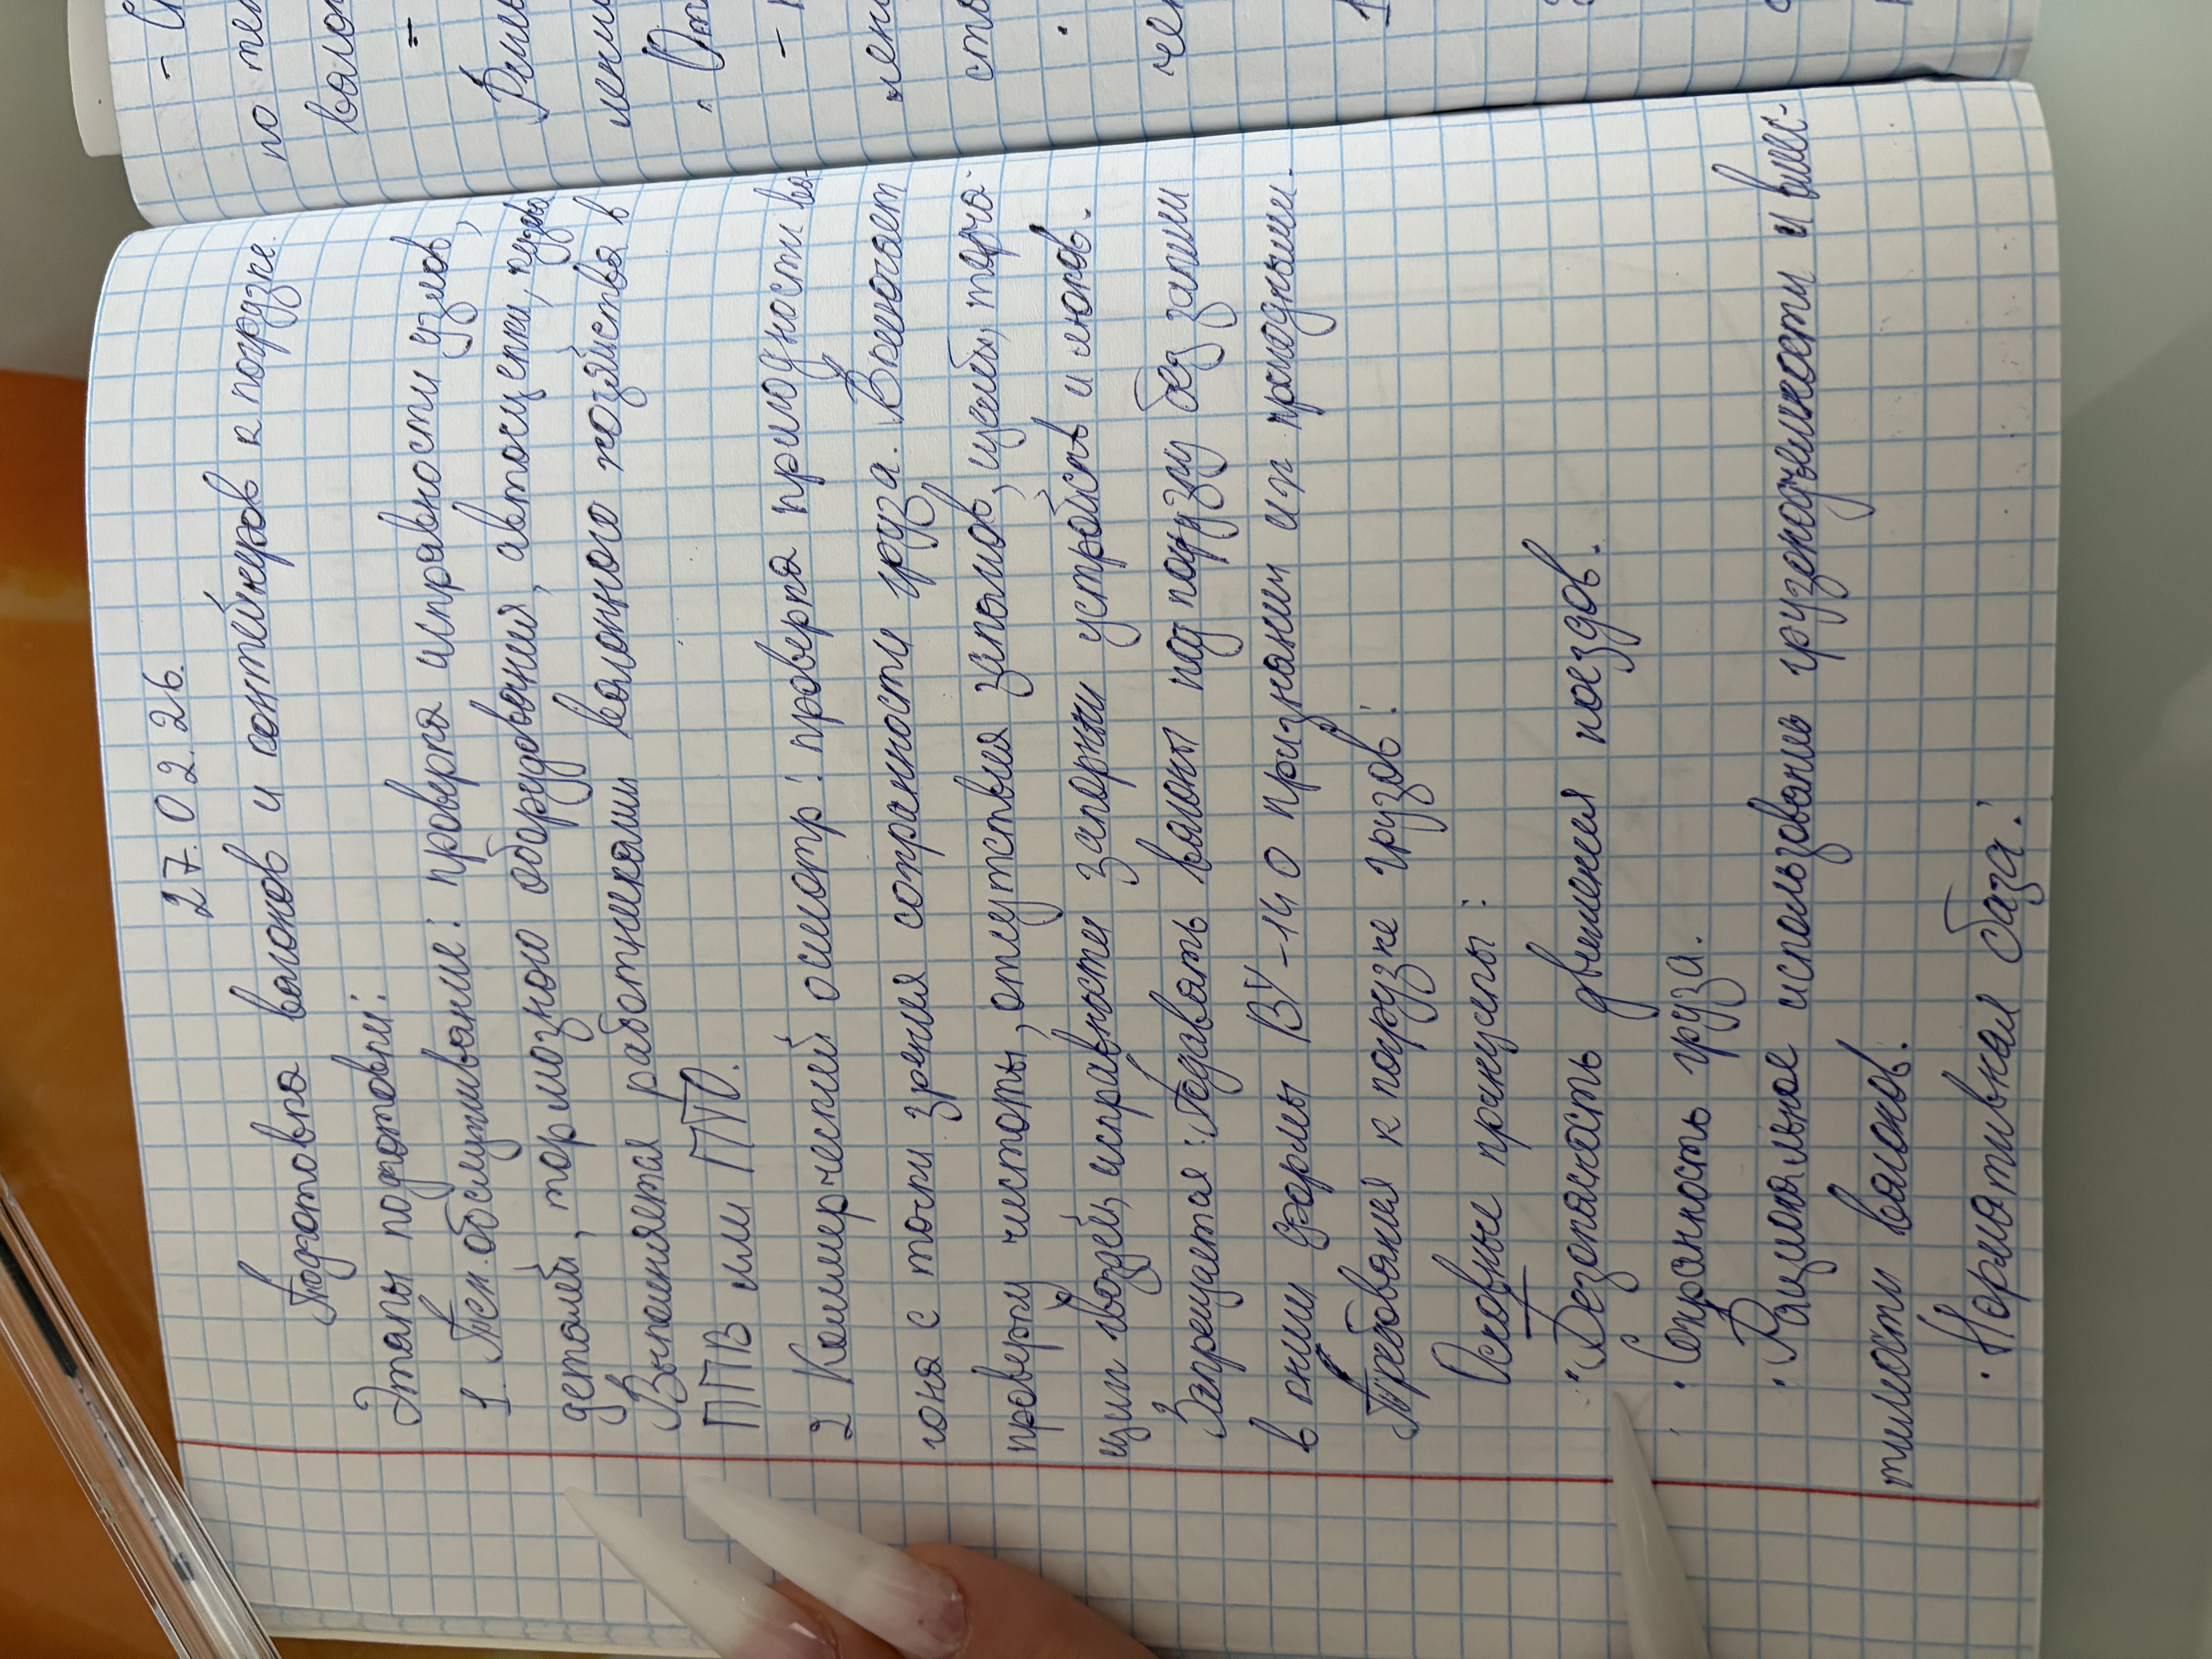 27.02.26.
Подготовка вагонов и контейнеров к погрузке.
Этапы подготовки:
1. Тех. обслуживание: проверка исправности узлов,
деталей, тормозного оборудования, автосцепки, кузова
Выполняется работниками вагонного хозяйства в
ППВ или ПТО.
2 Коммерческий осмотр: проверка пригодности ва-
гона с точки зрения сохранности груза. Включает
проверку чистоты, отсутствия запахов, щелей, торча-
щих гвоздей, исправности запорных устройств и люков.
Запрещается: Подавать вагоны под погрузку без записи
в книги формы ВУ-14 о признании их пригодными.
Требования к погрузке грузов:
Основные принципы:
· Безопасность движения поездов.
· Сохранность груза.
· Рациональное использовань грузоподъемности и вмес-
тимости вагонов.
· Нормативная база:
по тех
вагон
лени
· От
лен
сто
чен